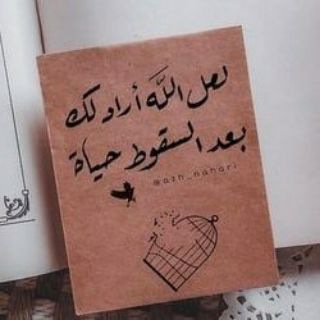 لعل اللَّه أراد لك
بعد السقوط حياة
@azh_nahari